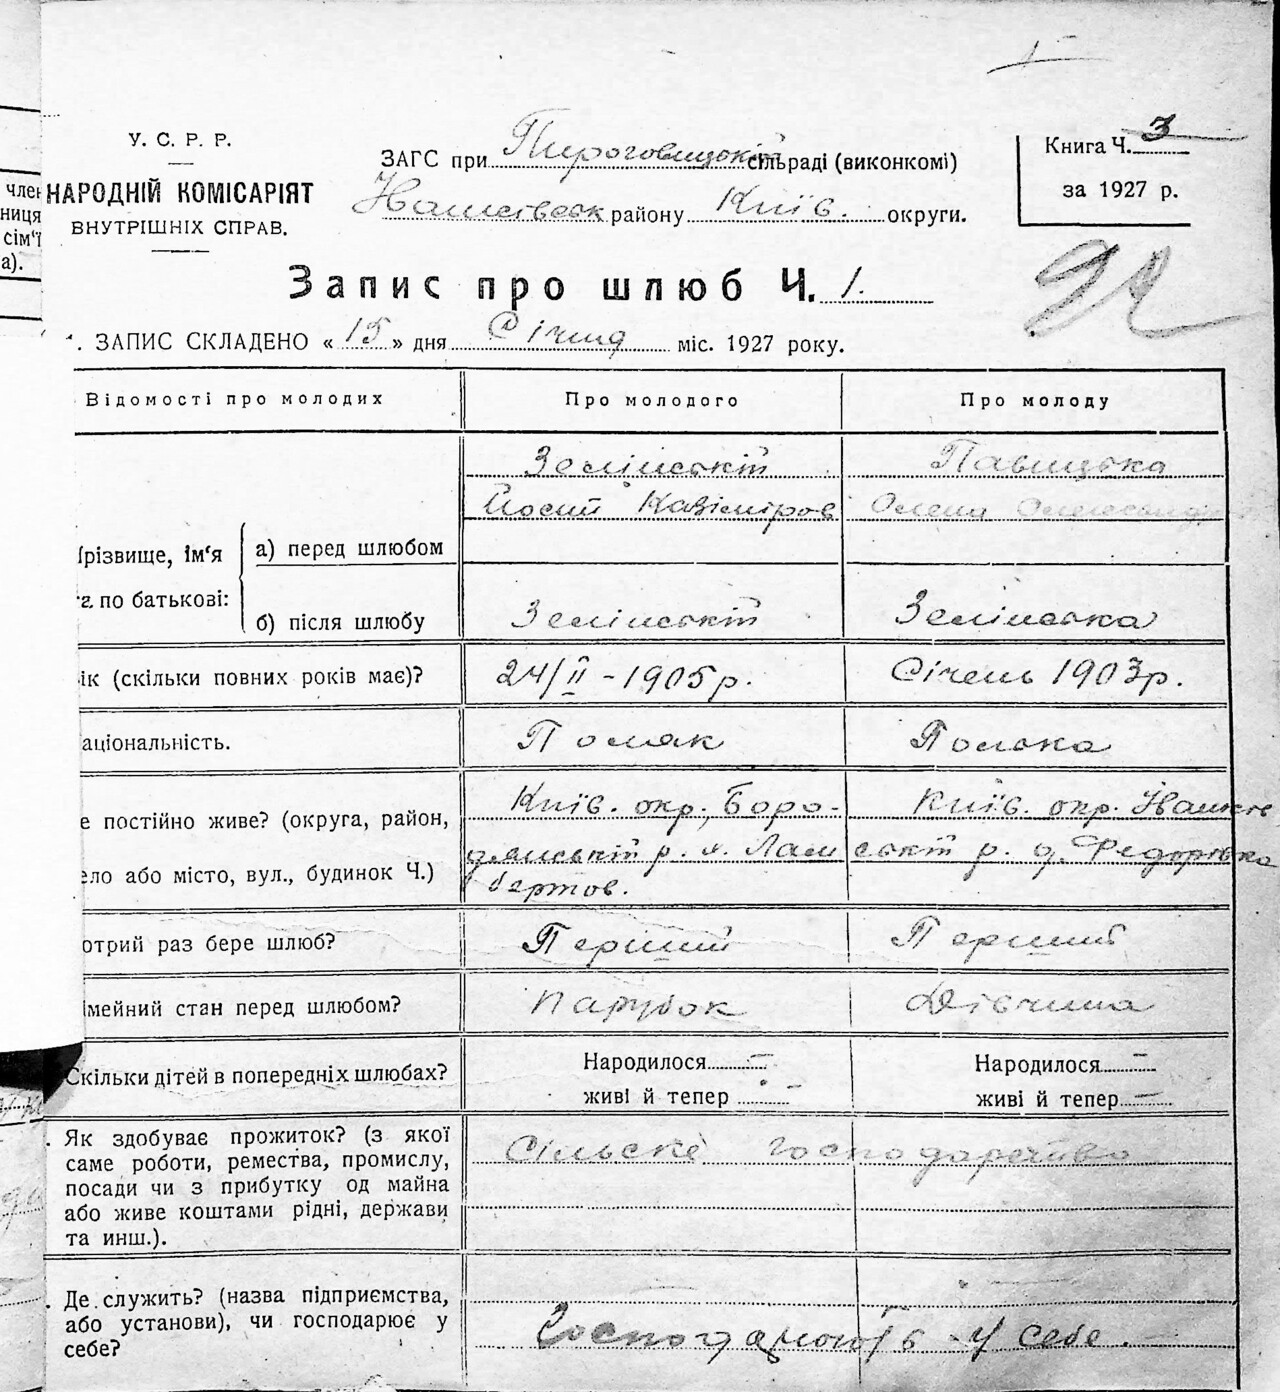 У. С. Р. Р.
НАРОДНІЙ КОМІСАРІЯТ
ВНУТРІШНІХ СПРАВ.
ЗАГС при Пироговицькій сільраді (виконкомі)
району Київ. округи.
Книга Ч. 3
за 1927 р.
член
ниця
сім'ї
а).
Запис про шлюб Ч. 1.
ЗАПИС СКЛАДЕНО « 15 » дня Січня міс. 1927 року.
Відомості про молодих
Про молодого
Про молоду
різвище, ім'я
по батькові:
а) перед шлюбом
Зелінській
Йосип Казіміров
Павицька
Олена Олександр
б) після шлюбу
Зелінській
Зелінська
ік (скільки повних років має)?
24/II - 1905 р.
Січень 1903 р.
аціональність.
Поляк
Полька
е постійно живе? (округа, район,
ело або місто, вул., будинок Ч.)
Київ. окр., Боро-
дянській р. х. Лам
бертов.
Київ. окр.
ській р. д. Федорівка
отрий раз бере шлюб?
Перший
Перший
імейний стан перед шлюбом?
Парубок
Дівчина
Скільки дітей в попередніх шлюбах?
Народилося —
живі й тепер —
Народилося —
живі й тепер —
. Як здобуває прожиток? (з якої
саме роботи, ремества, промислу,
посади чи з прибутку од майна
або живе коштами рідні, держави
та инш.).
Сільске господарство
. Де служить? (назва підприємства,
або установи), чи господарює у
себе?
у себе.